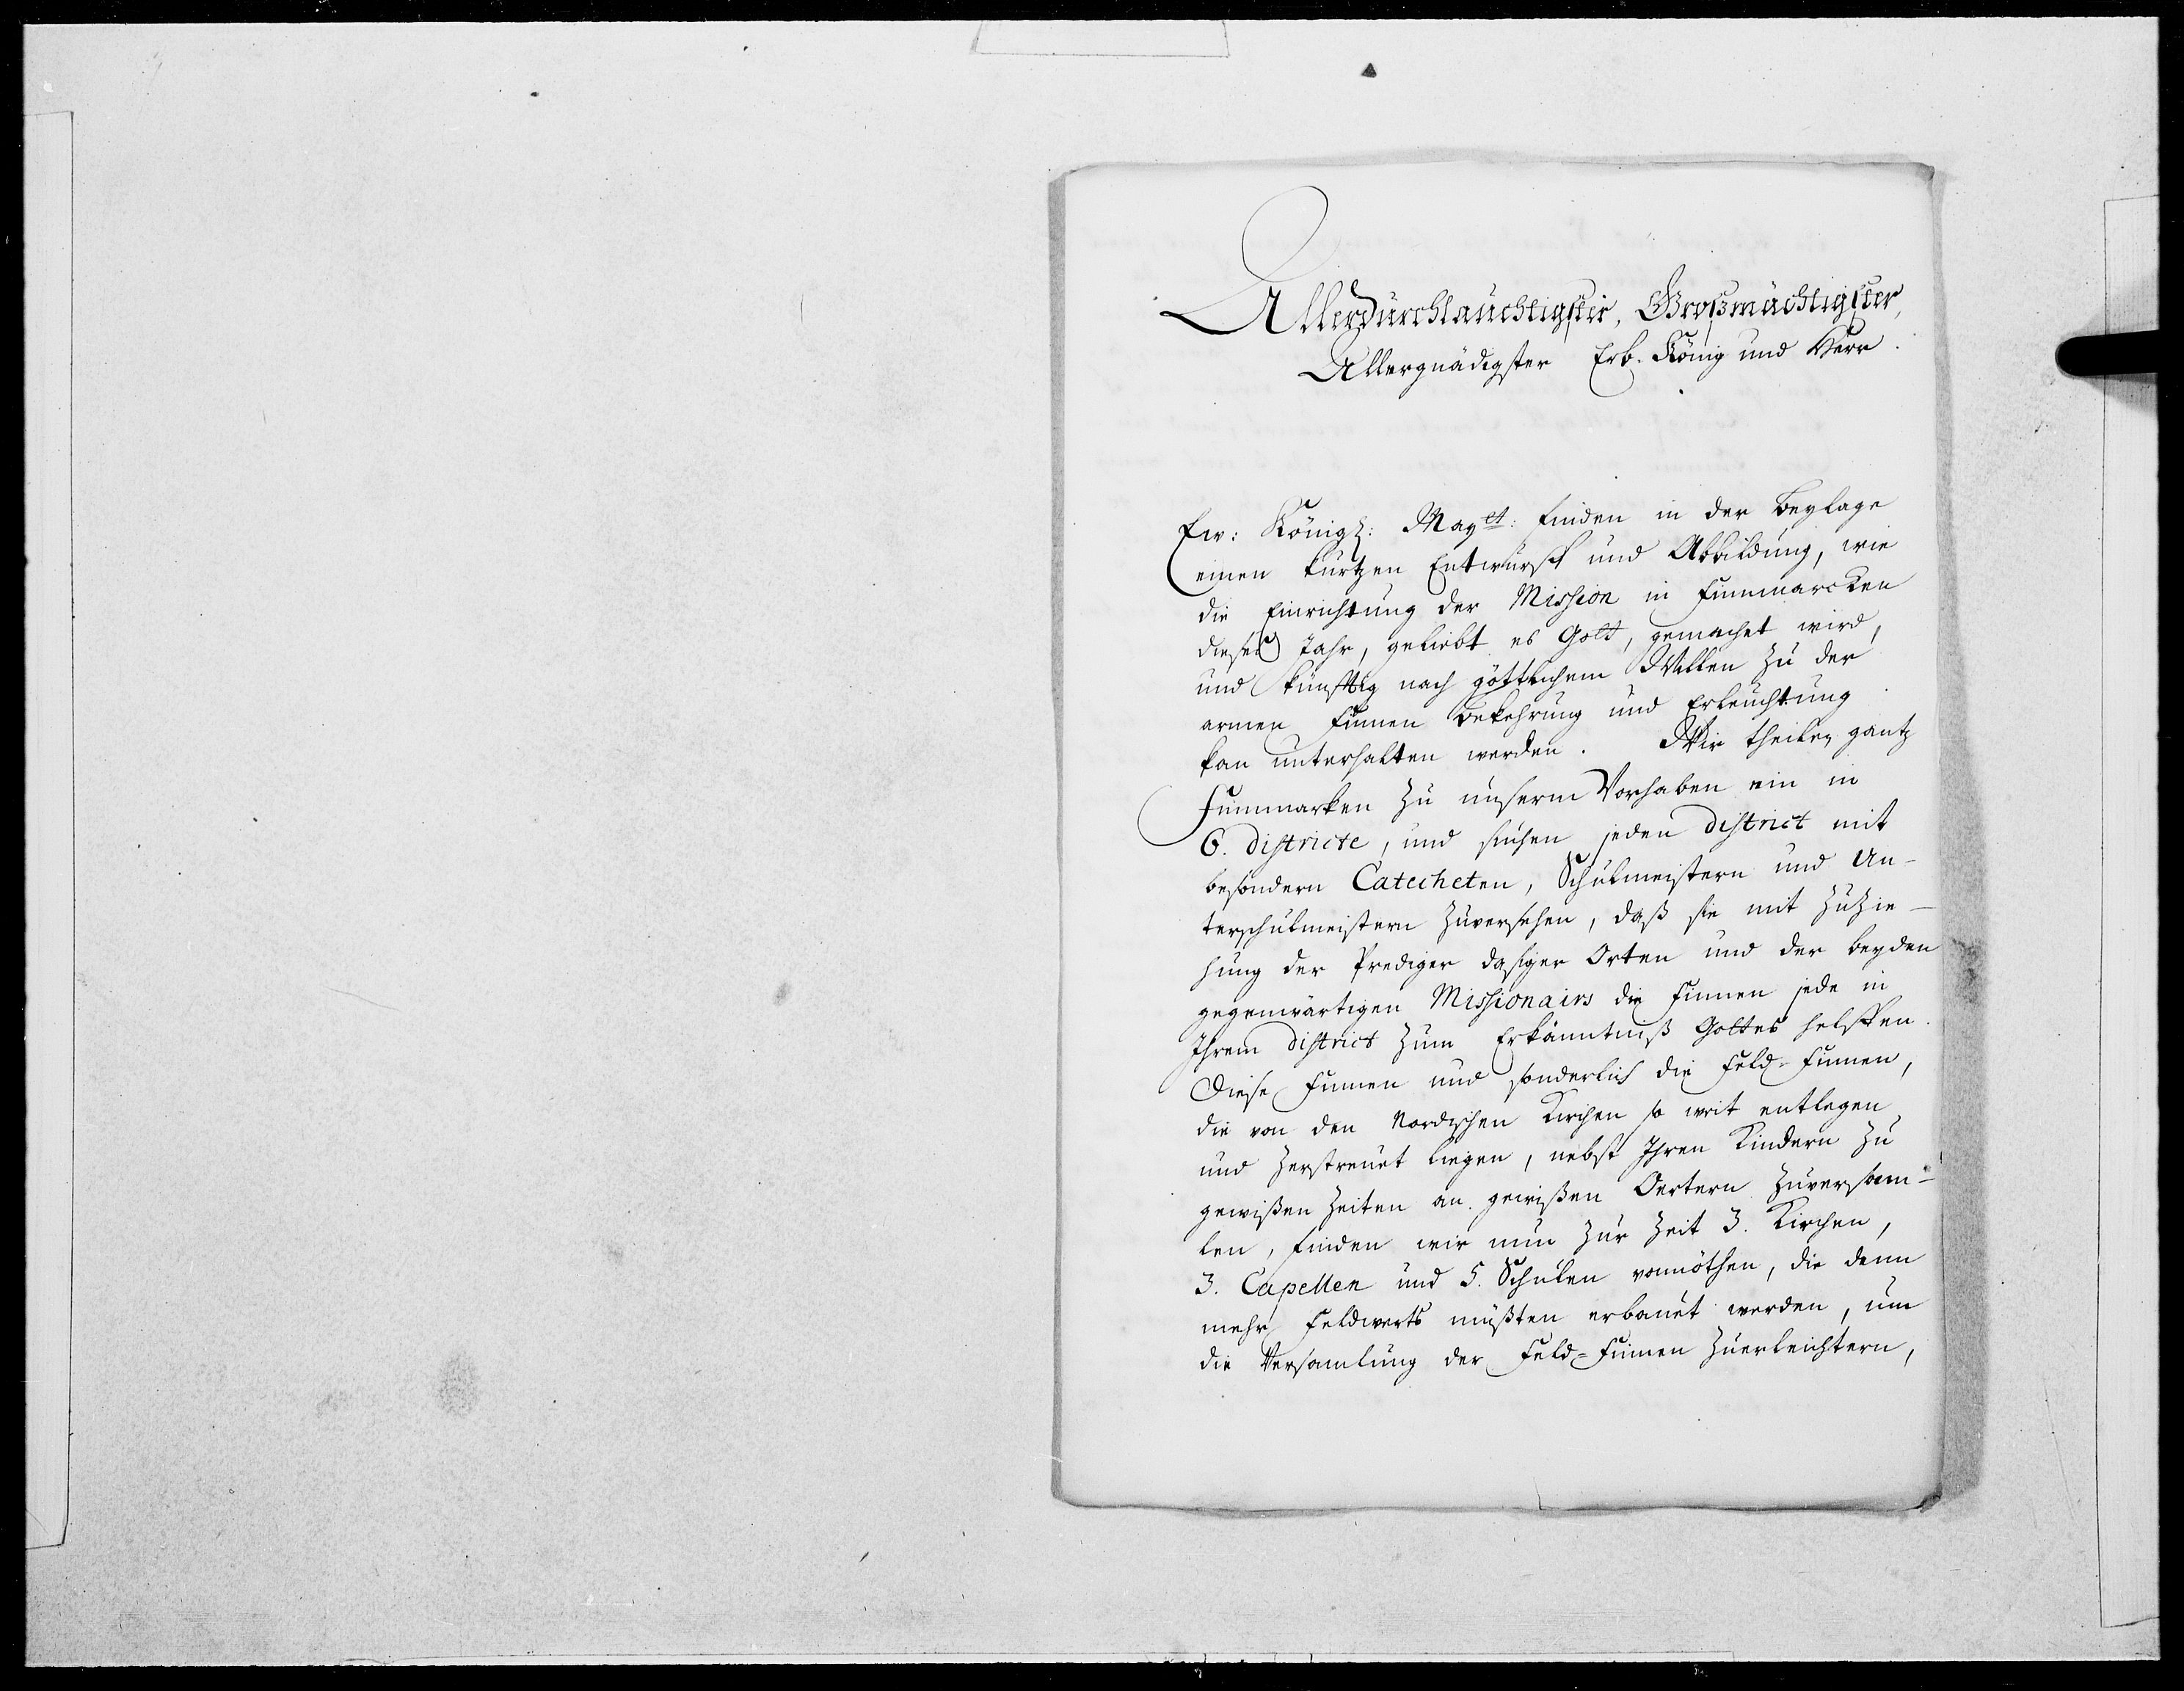 Allerdurchlauchtigster, Großmächtigster,
Allergnädigster Erb. König und Herr.
Ew: Königl: Maytt: finden in der Beylage
einen kurtzen Entwurff und Abbildung, wie
die Einrichtung der Mission in Finnmarcken
dieses Jahr, geliebt es Gott, gemachet wird,
und künfftig nach göttlichem Willen zu der
armen Finnen Bekehrung und Erleuchtung
kan unterhalten werden. Wir theilen gantz
Finnmarken zu unserm Vorhaben ein in
6. districte, und suchen jeden district mit
besondern Catecheten, Schulmeistern und Un-
terschulmeistern zuversehen, daß sie mit Zuzie-
hung der Prediger dasiger Orten und der beyden
gegenwärtigen Missionairs die Finnen jede in
Ihrem district zum Erkänntniß Gottes helffen.
Diese Finnen und sonderlich die Feld-Finnen,
die von den Nordischen Kirchen so weit entlegen,
und zerstreuet liegen, nebst Ihren Kindern zu
gewißen Zeiten an gewißen Oertern zuversam-
len, finden wir nun zur Zeit 3. Kirchen,
3. Capellen und 5. Schulen vonnöthen, die denn
mehr Feldwerts müßten erbauet werden, um
die Versamlung der Feld-Finnen zuerleichtern,